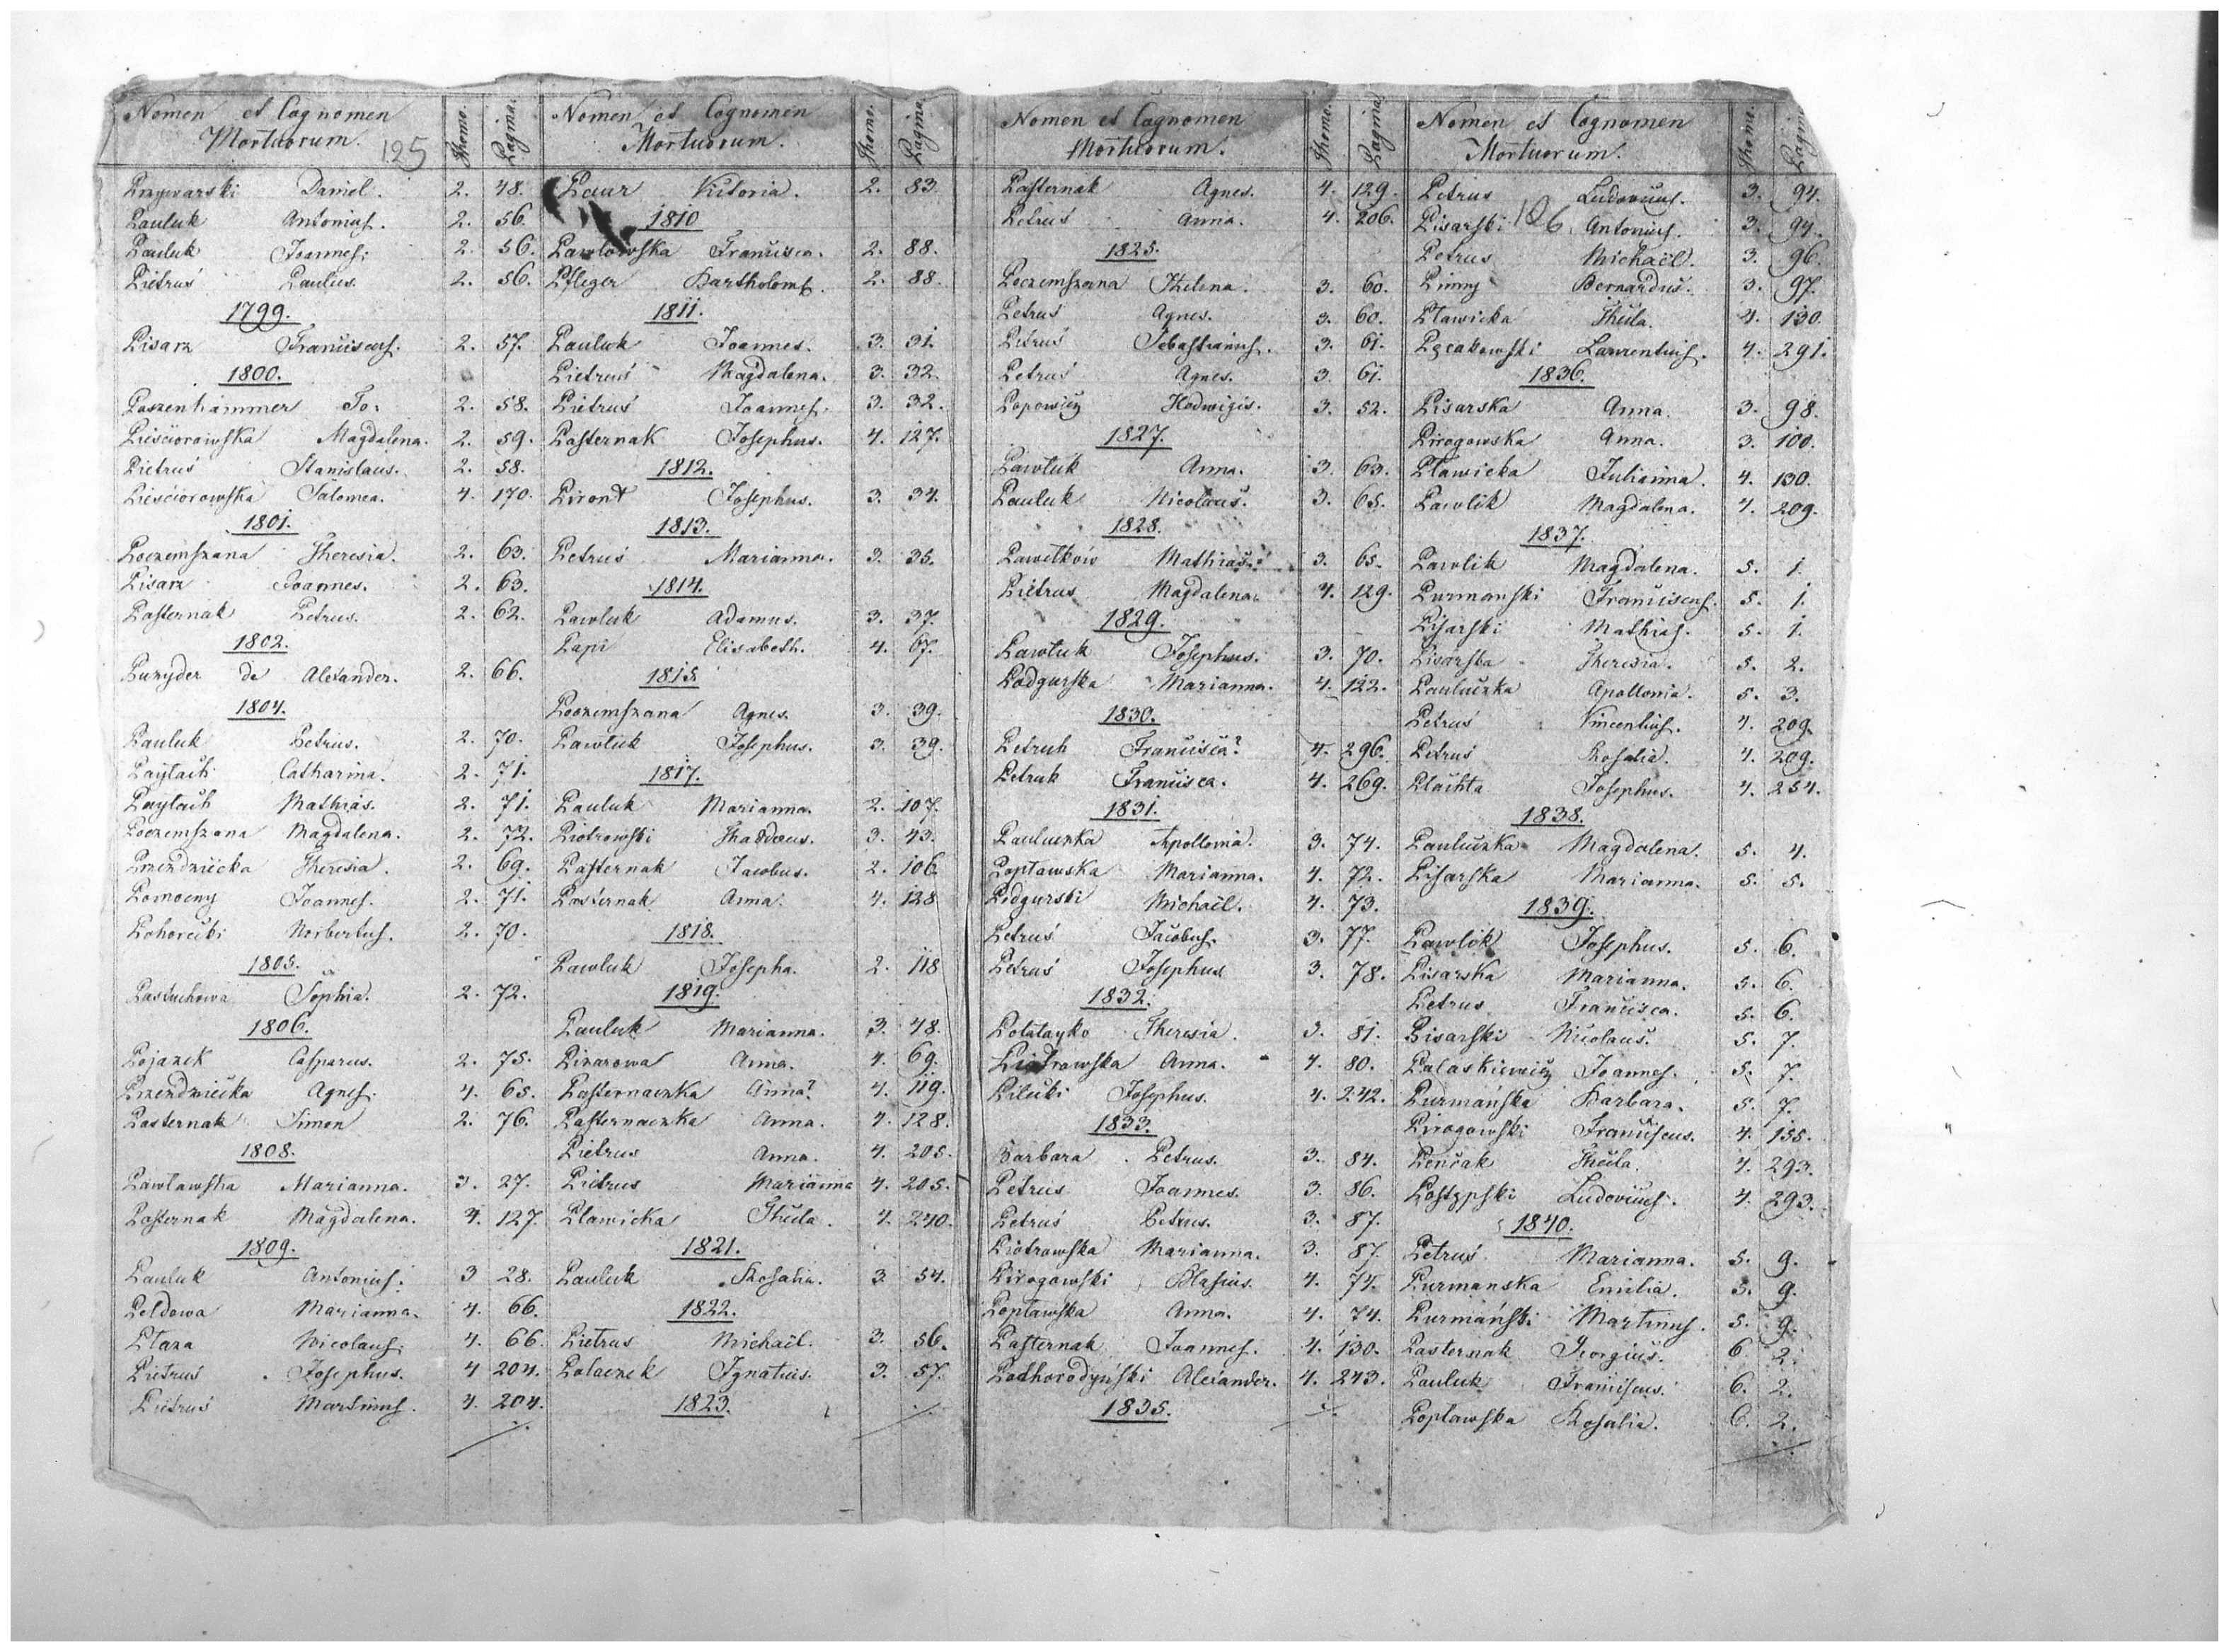 Nomen et Cognomen
Mortuorum. 125 Thomo. Pagina.
Przywarski Daniel. 2. 48.
Pauluk Antonius. 2. 56.
Pauluk Joannes. 2. 56.
Pietrus Paulus. 2. 56.
1799.
Pisarz Franciscus. 2. 57.
1800.
Paszenhammer Jo: 2. 58.
Pieściorowska Magdalena. 2. 59.
Pietruś Stanislaus. 2. 58.
Pieściorowska Salomea. 4. 170.
1801.
Poczemszana Theresia. 2. 63.
Pisarz Joannes. 2. 63.
Pasternak Petrus. 2. 62.
1802.
Puzyder de Alexander. 2. 66.
1804.
Pauluk Petrus. 2. 70.
Paytach Catharina. 2. 71.
Paytach Mathias. 2. 71.
Poczemszana Magdalena. 2. 72.
Przezdzwiecka Theresia. 2. 69.
Pomocny Joannes. 2. 71.
Pohorecki Norbertus. 2. 70.
1805.
Pastuchowa Sophia. 2. 72.
1806.
Pojazek Casparus. 2. 75.
Agnes. 4. 65.
Pasternak Simon 2. 76.
1808.
Pawlawska Marianna. 3. 27.
Pasternak Magdalena. 4. 127.
1809.
Pauluk Antonius. 3 28.
Peldowa Marianna. 4. 66.
Ptaza Nicolaus. 4. 66.
Pietrus Josephus. 4 204.
Pietrus Martinus. 4. 204.
Nomen et Cognomen
Mortuorum. Thomo. Pagina.
Paur Victoria. 2. 83.
1810
Pawlowska Francisca. 2. 88.
Pfleger Bartholoms. 2. 88.
1811.
Pauluk Joannes. 3. 31.
Pietruś Magdalena. 3. 32.
Pietruś Joannes. 3. 32.
Pasternak Josephus. 4. 127.
1812.
Piront Josephus. 3. 34.
1813.
Petruś Marianna. 3. 35.
1814.
Pawluk Adamus. 3. 37.
Papi Elisabeth. 4. 67.
1815
Poczemszana Agnes. 3. 39.
Pawluk Josephus. 3. 39.
1817.
Pauluk Marianna. 2. 107.
Piotrowski Thaddeus. 3. 43.
Pasternak Jacobus. 2. 106.
Pasternak Anna. 4. 128
1818.
Pawluk Josepha. 2. 118
1819.
Pauluk Marianna. 3. 48.
Pizarowa Anna. 4. 69.
Pasternaczka Anna? 4. 119.
Pasternaczka Anna. 4. 128.
Pietrus Anna. 4. 205.
Pietrus Marianna 4. 205.
Plawicka Thecla. 4. 240.
1821.
Pauluk Rosalia. 3. 54.
1822.
Pietrus Michael. 3. 56.
Polaczek Ignatius. 3. 57.
1823.
Nomen et Cognomen
Mortuorum. Thomo. Pagina
Pasternak Agnes. 4. 129.
Petruś Anna. 4. 206.
1825.
Poczemszana Helena. 3. 60.
Petruś Agnes. 3. 60.
Petruś Sebastianus. 3. 61.
Petruś Agnes. 3. 61.
Popowicz Hedwigis. 3. 52.
1827.
Pawluk Anna. 3. 63.
Pauluk Nicolaus. 3. 65.
1828.
Pawelków Mathias. 3. 65.
Pietrus Magdalena. 4. 129.
1829.
Pawluk Josephus. 3. 70.
Podgurska Marianna. 4. 122.
1830.
Petruk Francisca? 4. 296.
Petruk Francisca. 4. 269.
1831.
Pauluzka Apollonia. 3. 74.
Poplawska Marianna. 4. 72.
Podgurski Michaël. 4. 73.
Petruś Jacobus. 3. 77.
Petruś Josephus 3. 78.
1832.
Potatayko Theresia. 3. 81.
Piotrowska Anna. 4. 80.
Pilecki Josephus. 4. 242.
1833.
Barbara Petrus. 3. 84.
Petrus Joannes. 3. 86.
Petruś Petrus. 3. 87.
Piotrowska Marianna. 3. 87.
Pirogowski Blasius. 4. 74.
Poplawska Anna. 4. 74.
Pasternak Joannes. 4. 130.
Pothorodyński Alexander. 4. 243.
1835.
Nomen et Cognomen
Mortuorum. Thomo. Pagina
Petrus Ludovicus. 3. 94.
Pisarski 126 Antonius. 3. 94.
Petrus Michaël. 3. 96.
Pinny Bernardus. 3. 97.
Plawicka Thecla. 4. 130.
Laurentius. 4. 291.
1836.
Pisarska Anna. 3. 98.
Pirogowska Anna. 3. 100.
Plawicka Julianna. 4. 130.
Pawlik Magdalena. 4. 209.
1837.
Pawlik Magdalena. 5. 1.
Purmanski Franciscus. 5. 1.
Pisarski Mathias. 5. 1.
Pisarska Theresia. 5. 2.
Pauluczka Apollonia. 5. 3.
Petruś Vincentius. 4. 209.
Petruś Rosalia. 4. 209.
Plachta Josephus. 4. 254.
1838.
Pauluczka Magdalena. 5. 4.
Pisarska Marianna. 5. 5.
1839.
Pawlik Josephus. 5. 6.
Pisarska Marianna. 5. 6.
Petrus Francisca. 5. 6.
Pisarski Nicolaus. 5. 7.
Palaskiewicz Joannes. 5. 7.
Purmańska Barbara. 5. 7.
Pirogowski Franciscus. 4. 155.
Penčak Thecla. 4. 293.
Postępski Ludovicus. 4. 293.
1840.
Petruś Marianna. 5. 9.
Purmanska Emilia. 5. 9.
Purmański Martinus. 5. 9.
Pasternak Georgius. 6 2.
Pauluk Franciscus. 6. 2.
Poplawska Rosalia. 6. 2.